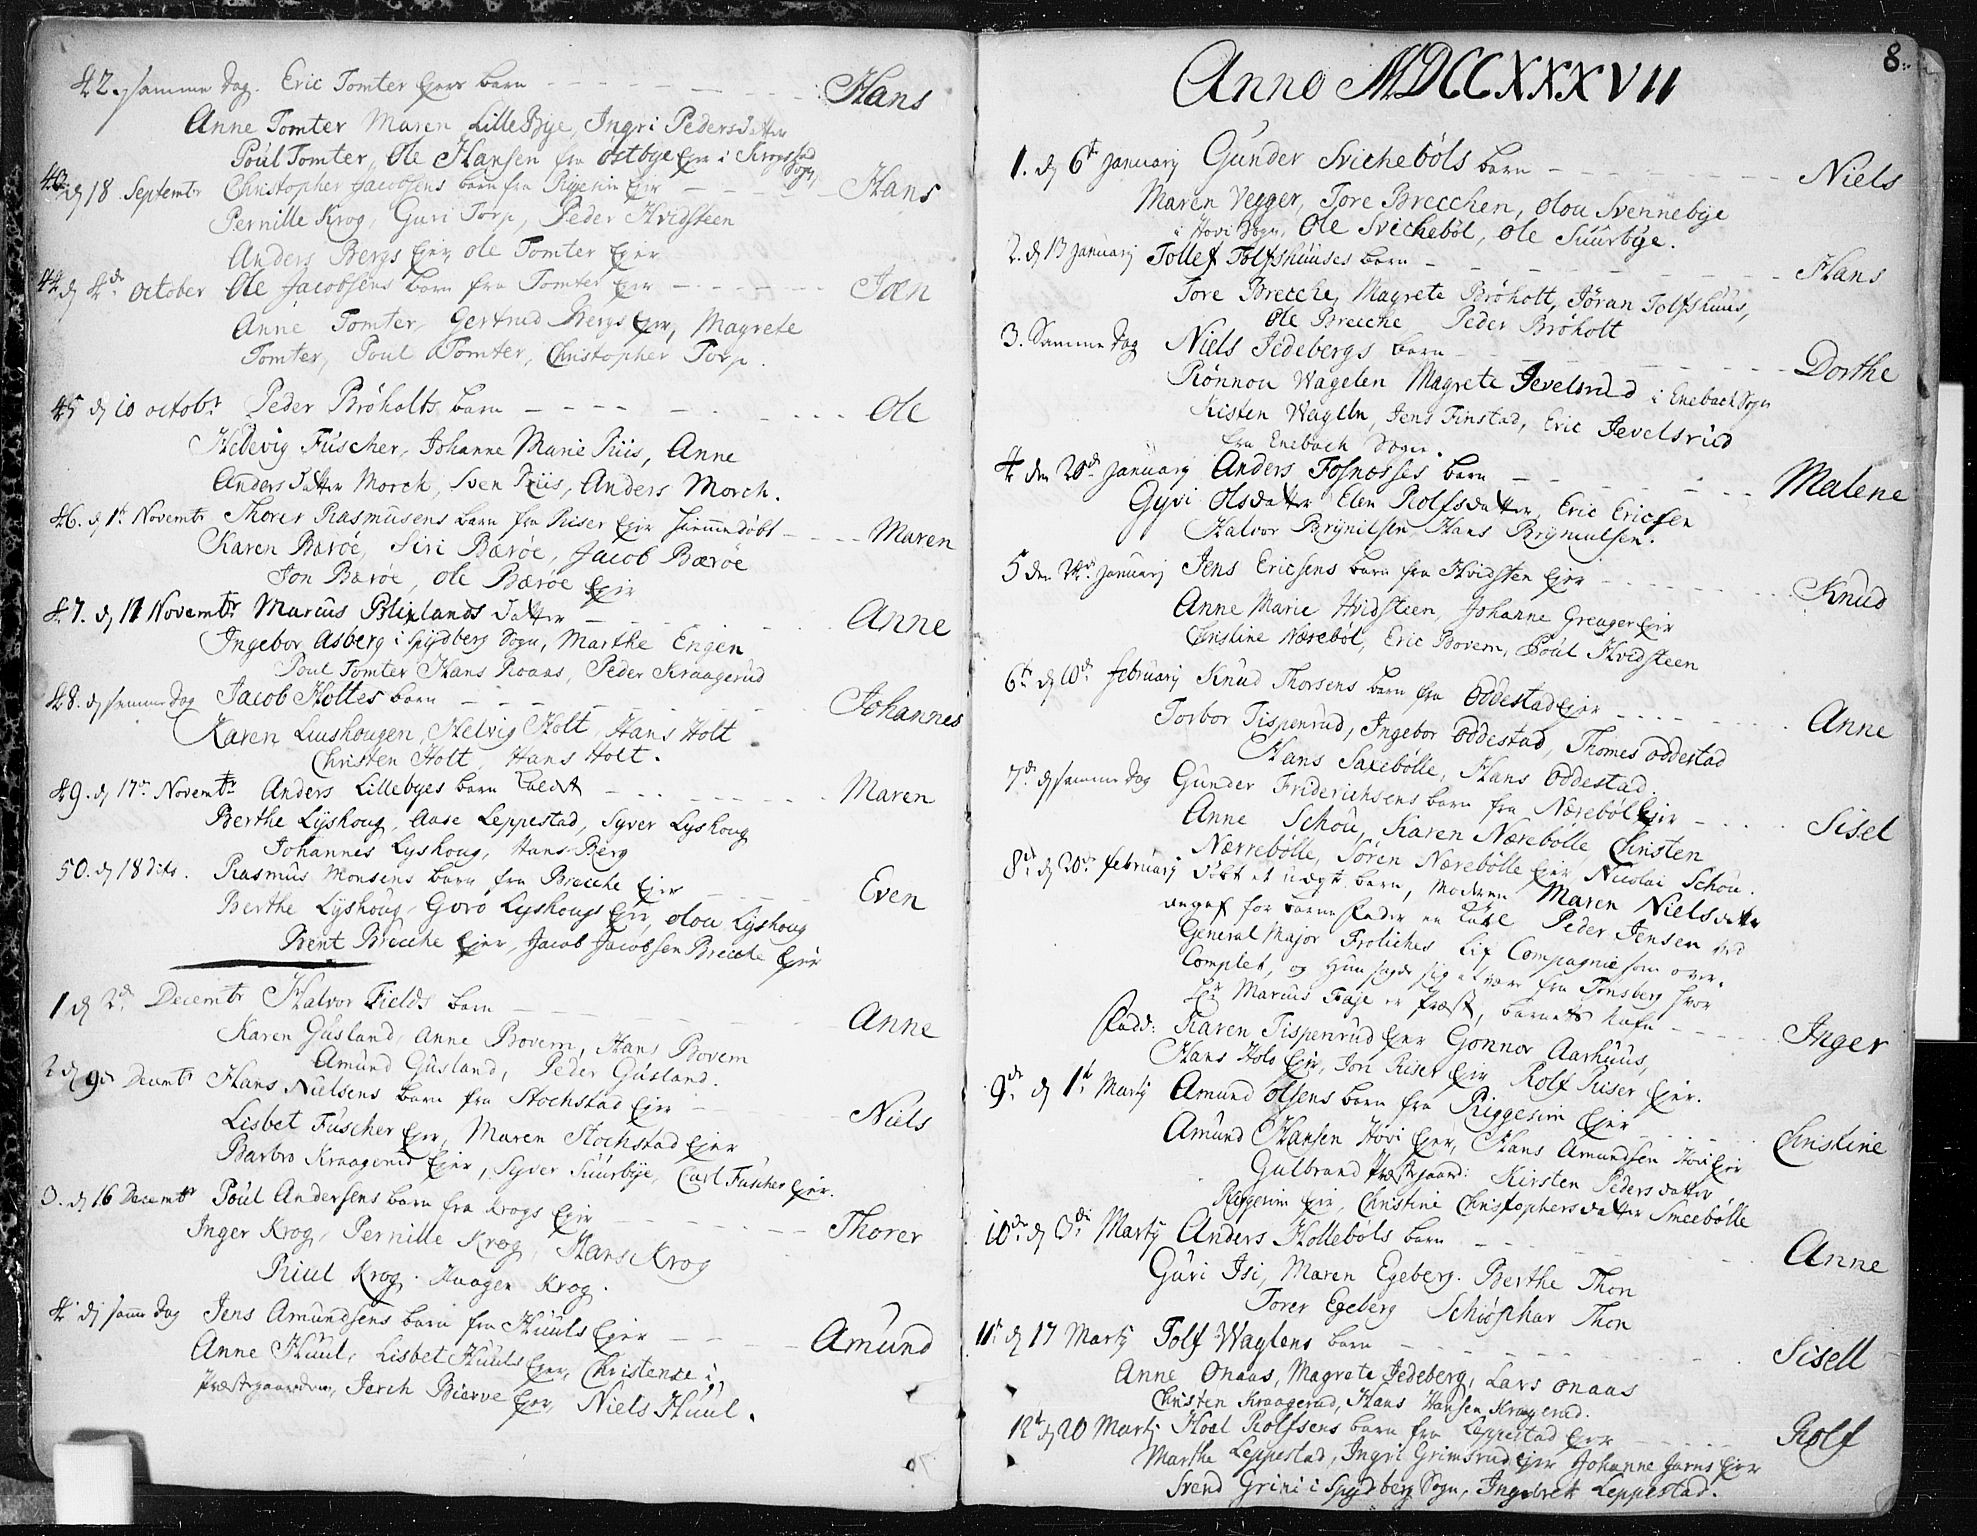 42. samme dag. Eric Tomter Ejers barn Hans
Anne Tomter Maren Lille Bye, Ingri Pedersdatter
Poul Tomter, Ole Hansen fra östbye Ejer i Krogstad
Sogn
43 dj 18 Septembr Christopher Jacobsens barn fra Riggesin Ejer Hans
Pernille Krog, Guri Torp, Peder Hvidsteen
Anders Bergs Ejer, ole Tomter Ejer
44 dj 4de october Ole Jacobsens barn fra Tomter Ejer Joen
Anne Tomter, Gertrud Bergs Ejer, Magrete
Tomter, Poul Tomter, Christopher Torp.
45 dj 10 octobr Peder Bröholts barn Ole
Hedevig Füscher, Johanne Marie Riis, Anne
Andersdatter Morch, Sven Riis, Anders Morch.
46. dj 1t Novembr Thorer Rasmusens barn fra Riser Ejer hiemmedöbt Maren
Karen Bæröe, Siri Bæröe, Jacob Bæröe
Jon Bæröe, ole Bæröe Ejer
47. dj 11 Novembr Marcus Blixlands datter Anne
Ingebor Asberg i Spydberg Sogn, Marthe Engen
Poul Tomter Hans Roaas, Peder Kraagerud
48. dj samme dag Jacob Holtes barn Johannes
Karen Liushougen, Helvig Holt, Hans Holt
Christen Holt, Hans Holt.
49. dj 17de Novembr Anders Lillebyes barn kaldt Maren
Berthe Lyshoug, Aase Leppestad, Syver Lyshoug
Johannes Lyshoug, Hans Berg
50. dj 18 dito. Rasmus Monsens barn fra Brecche Ejer Even
Berthe Lyshoug, Goro Lyshougs Ejer, olou Lyshoug
Bent Brecche Ejer, Jacob Jacobsen Brecche Ejer
1 dj 2de Decembr Halvor Fields barn Anne
Karen Gusland, Anne Bovem, Hans Bovem
Amund Gusland, Peder Gusland.
2 dj 9de Decembr Hans Nielsens barn fra Stochstad Ejer Niels
Lisbet Fuscher Ejer, Maren Stochstad Ejer
Barbro Kraagerud Ejer, Syver Suurbye, Carl Fuscher Ejer.
3. dj 16 Decembr Poul Andersens barn fra Krogs Ejer Thorer
Inger Krog, Pernille Krog, Hans Krog
Riul Krog. Haagen Krog.
4 dj samme dag Jens Amundsens barn fra Huuls Ejer Amund
Anne Huul, Lisbet Huuls Ejer, Christense i
Præstgaarden, Jerch Biørve Ejer, Niels Huul.
8.
Anno MDCCXXXVII
1. dj 6te January Gunder Svichebøls barn Niels
Maren Vegger, Tore Brecchen, olou Svennebye
i Hovi Sogn, Ole Svichebøl, Ole Suurbye.
2. dj 13 January Tollef Tolfshuuses barn Hans
Tore Brecche, Magrete Bröholt, Jöran Tolfshuus,
Ole Brecche Peder Bröholt
3. Samme dag Niels Jedebergs barn Dorthe
Rönnou Wagelen Magrete Jevelsrud i Enebach Sogn
Kisten Waglen, Jens Finstad, Eric Jevelsrud
fra Enebach Sogn.
4 den 20de January Anders Fosnæsses barn Malene
Gyri Olsdatter Elen Rolfsdatter, Eric Ericsen
Halvor Brynilsen Hans Brynnulsen.
5 den January Jens Ericsens barn fra Hvidsten Ejer Knud
Anne Marie Hvidsteen, Johanne Greager Ejer
Christine Næreböl, Eric Bovem, Poul Hvidsteen
6te dj 10de february Knud Thorsens barn fra Oddestad Ejer Anne
Torbor Tispenrud, Ingebor Oddestad, Thomes oddestad
Hans Saxebölle, Hans Oddestad.
7de dj samme dag Gunder Friderichsens barn fra Næreböl Ejer Sisel
Anne Schou, Karen Nærebölle, Christen
Nærrebölle, Sören Nærebölle Ejer Nicolai Schou.
8de dj 20de february döbt et uægte barn, Moderen Maren Nielsdatter
angaf for barne Fader en Peder Jensen ved
General Major Frolichs Lif Compagnie som over-
complet, og hun sagde sig at være fra Tønsberg hvor
Hr Marcus er Præst, barnets Nafn Inger
Fadd: Karen Tispenrud Ejer Gonnor Aarhuus,
Hans Holo Ejer, Jon Riser Ejer Rolf Riser Ejer.
9de dj 1te Marty Amund olsens barn fra Riggesim Ejer Christine
Amund Hansen Hovi Ejer, Hans Amundsen Hovi Ejer
Gulbrand Præstgaard: Kirsten Pedersdatter
Riggesim Ejer, Christine Christophersdatter Smeebölle
10de dj 3de Marty Anders Kolleböls barn Anne
Guri Isi, Maren Egeberg. Berthe Thon
Torer Egeberg Schiöphar Thon
11te dj 17 Marty Tolf Waglens barn Sisell
Anne Onaas, Magrete Jedeberg, Lars onaas
Christen Kraagerud, Hans Hansen Kragerud.
12te dj 20 Marty Hoel Rolfsens barn fra Leppestad Ejer Rolf
Marthe Leppestad, Ingri Grimsrud Ejer Johanne Ejer
Svend Grini i Spydberg Sogn, Ingebret Leppestad.